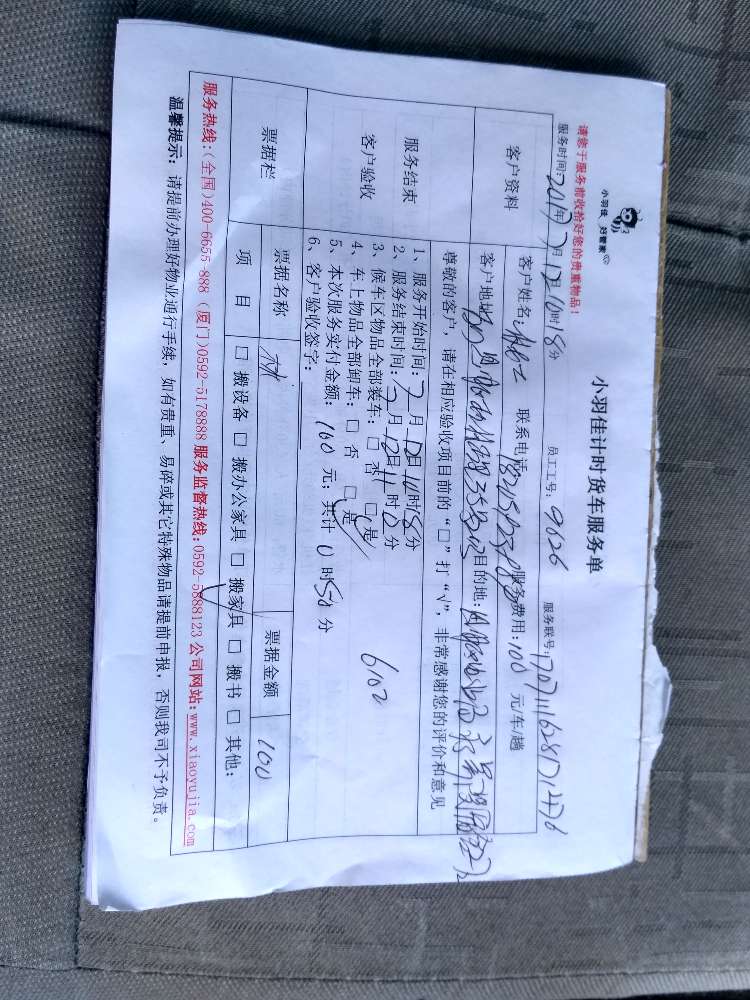 小羽佳 好管家
小羽佳计时货车服务单
请您于服务前收拾好您的贵重物品！
服务时间:2017年7月12日10时18分 员工工号:9626 服务联号:
客户资料
客户姓名: 联系电话: 服务费用:100元/车/趟
客户地址: 目的地:
服务结束
客户验收
尊敬的客户，请在相应验收项目前的“□”打“√”，非常感谢您的评价和意见
1、服务开始时间:7月12日10时18分
2、服务结束时间:7月12日11时8分
3、候车区物品全部装车: □ 否 □ 是
4、车上物品全部卸车: □ 否 □ 是
5、本次服务实付金额: 100 元; 共计 0 时50分
6、客户验收签字:
6102
票据栏
票据名称 票据金额 100
项 目 □ 搬设备 □ 搬办公家具 □ 搬家具 □ 搬书 □ 其他:
服务热线:(全国)400-6655-888 (厦门)0592-5178888 服务监督热线:0592-5888123 公司网站:www.xiaoyujia.com
温馨提示: 请提前办理好物业通行手续, 如有贵重、易碎或其它特殊物品请提前申报, 否则我司不予负责。